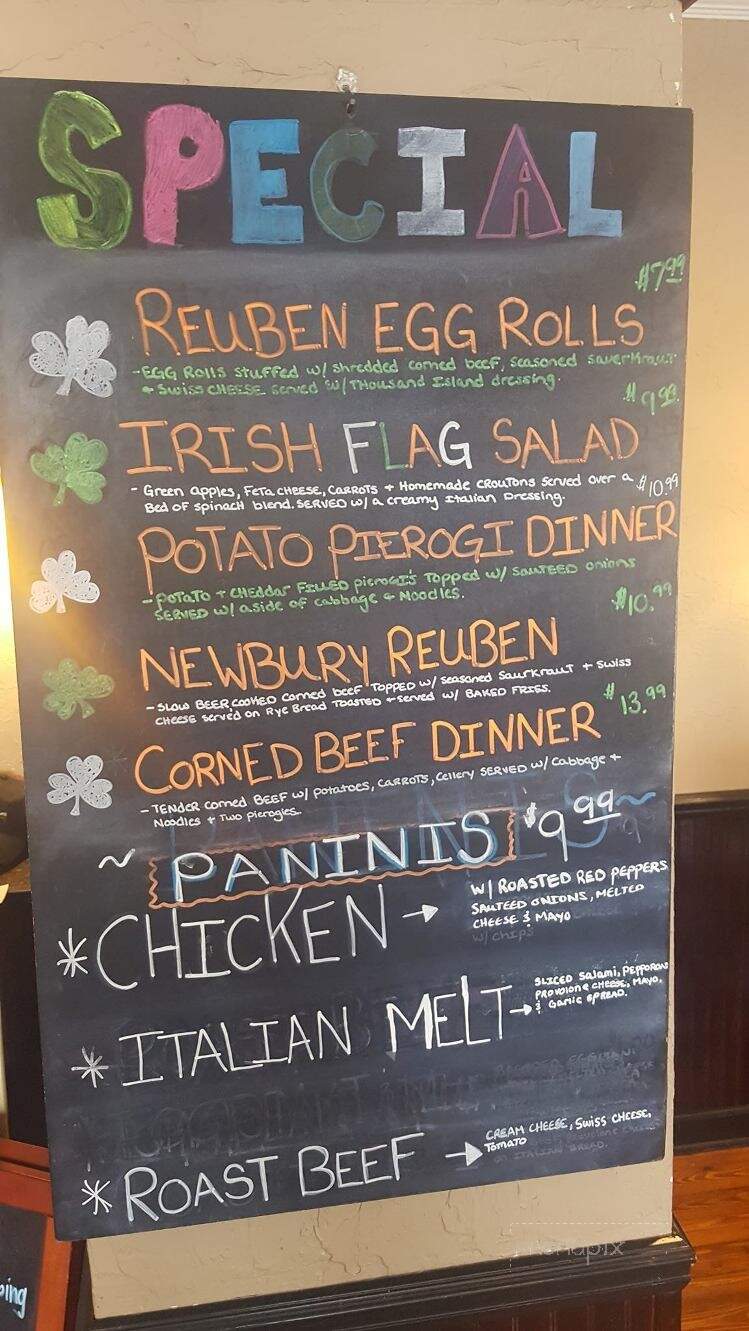 SPECIAL
$7.99
REUBEN EGG ROLLS
-EGG ROLLS STUFFED W/ SHREDDED CORNED BEEF, SEASONED SAUERKRAUT
+ SWISS CHEESE SERVED W/ THOUSAND ISLAND DRESSING.
$9.99
IRISH FLAG SALAD
- Green apples, FETA CHEESE, CARROTS + Homemade CROUTONS SERVED over a
$10.99
BED OF SPINACH BLEND. SERVED W/ a creamy ITALIAN DRESSING.
POTATO PIEROGI DINNER
-POTATO + CHEDDAR FILLED PIEROGI'S TOPPED W/ SAUTEED ONIONS
SERVED W/ a side of cabbage + NOODLES.
$10.99
NEWBURY REUBEN
- SLOW BEER COOKED CORNED BEEF TOPPED W/ SEASONED SAURKRAUT + SWISS
CHEESE served on Rye Bread TOASTED + served W/ BAKED FRIES.
$13.99
CORNED BEEF DINNER
- TENDER CORNED BEEF W/ POTATOES, CARROTS, Cellery SERVED W/ Cabbage +
Noodles + Two pierogies.
~ PANINIS $9.99 ~
*CHICKEN →
W/ ROASTED RED PEPPERS
SAUTEED ONIONS, MELTED
CHEESE & MAYO
W/ CHIPS
* ITALIAN MELT →
SLICED Salami, PEPPORONI
PROVOLONE CHEESE, MAYO,
& Garlic SPREAD.
* ROAST BEEF →
CREAM CHEESE, SWISS CHEESE,
Tomato
ON ITALIAN BREAD.
ping